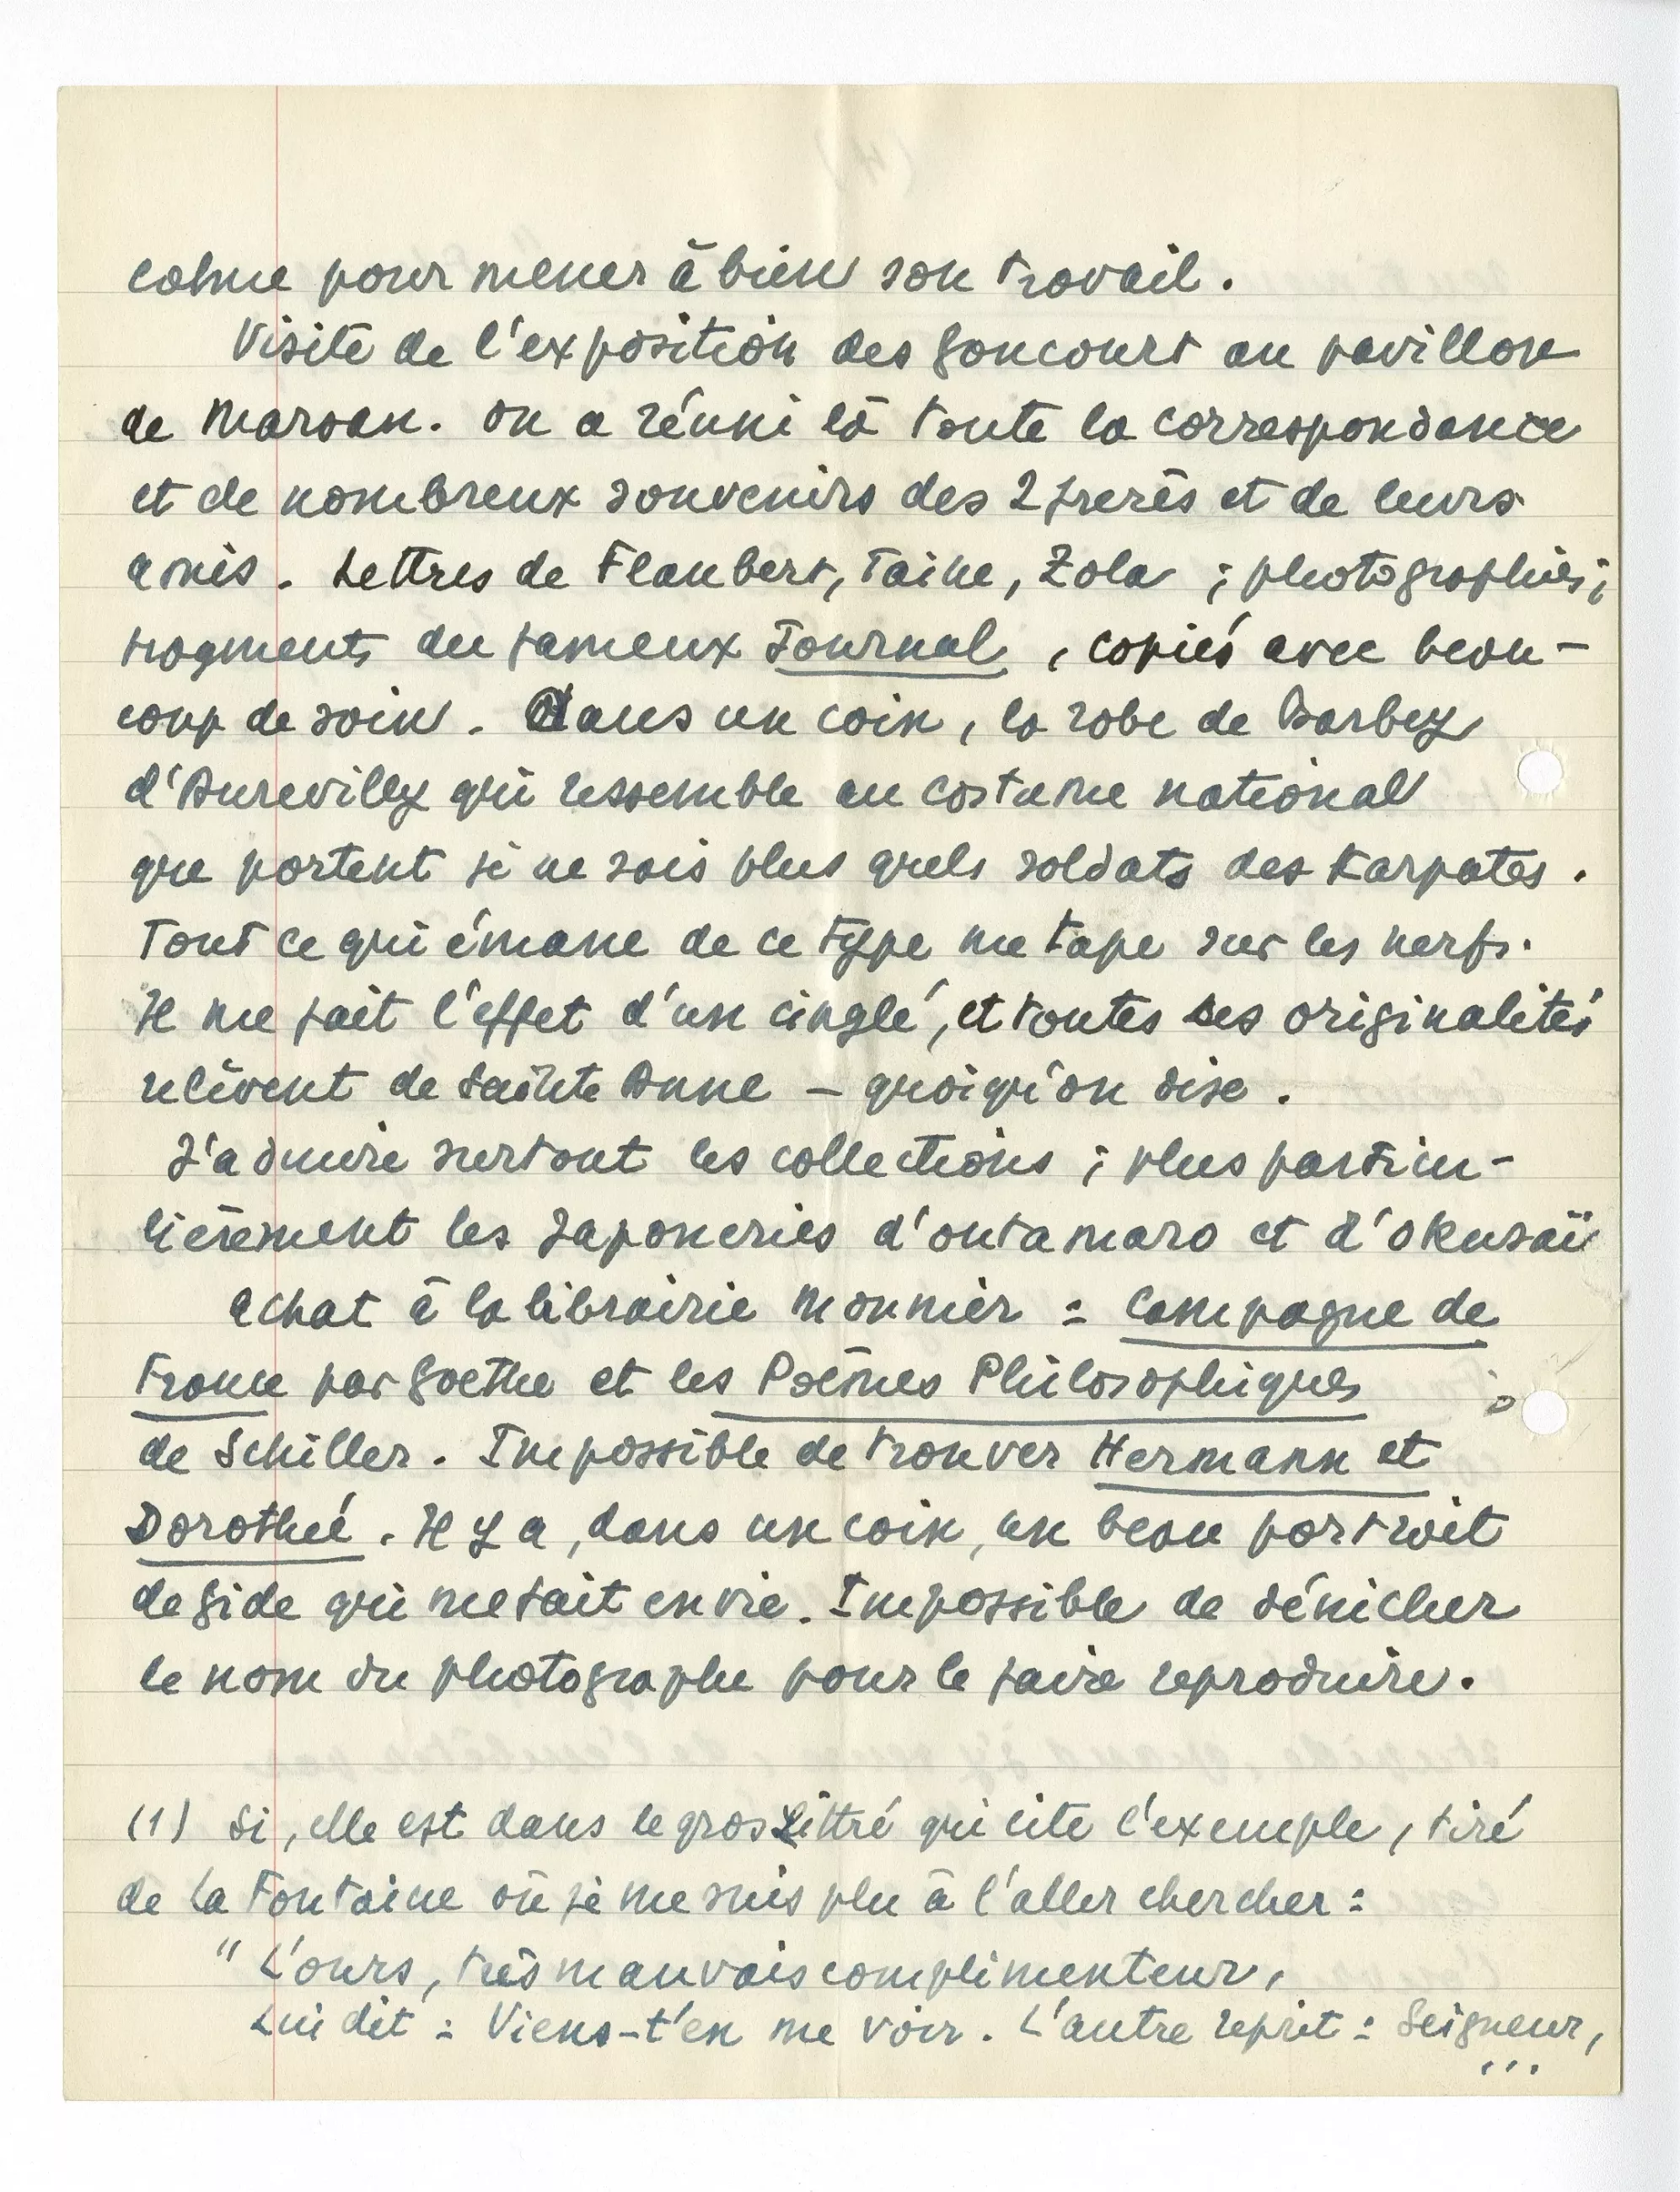 calme pour mener à bien son travail.
Visite de l'exposition des Goncourt au pavillon
de Marsan. On a réuni là toute la correspondance
et de nombreux souvenirs des 2 frères et de leurs
amis. Lettres de Flaubert, Taine, Zola ; photographies ;
fragments du fameux Journal, copiés avec beau-
coup de soin. Dans un coin, la robe de Barbey
d'Aurevilly qui ressemble au costume national
que portent je ne sais plus quels soldats des Karpates.
Tout ce qui émane de ce type me tape sur les nerfs.
Il me fait l'effet d'un cinglé, et toutes ses originalités
relèvent de Sainte Anne – quoiqu'on dise.
J'admire surtout les collections ; plus particu-
lièrement les Japoneries d'Outamaro et d'Okusaï
Achat à la librairie Monnier : Campagne de
France par Goethe et les Poèmes Philosophiques
de Schiller. Impossible de trouver Hermann et
Dorothée. Il y a, dans un coin, un beau portrait
de Gide qui me fait envie. Impossible de dénicher
le nom du photographe pour le faire reproduire.
(1) Si, elle est dans le gros Littré qui cite l'exemple, tiré
de La Fontaine où je me suis plu à l'aller chercher :
" L'ours, très mauvais complimenteur,
Lui dit : Viens-t'en me voir. L'autre reprit : Seigneur,
...